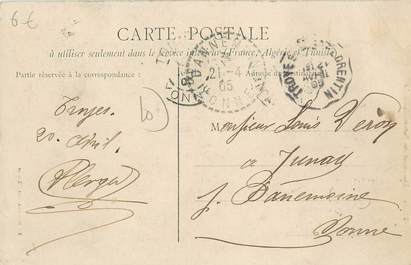 6 €
CARTE POSTALE
à utiliser seulement dans le Service intérieur (France, Algérie et Tunisie)
Partie réservée à la correspondance
Adresse du destinataire
TROYES
FLORENTIN
21-4
05
YONNE
Troyes
20 Avril
Monsieur Louis Veroy
à Junay
p. Dannemoine
Yonne